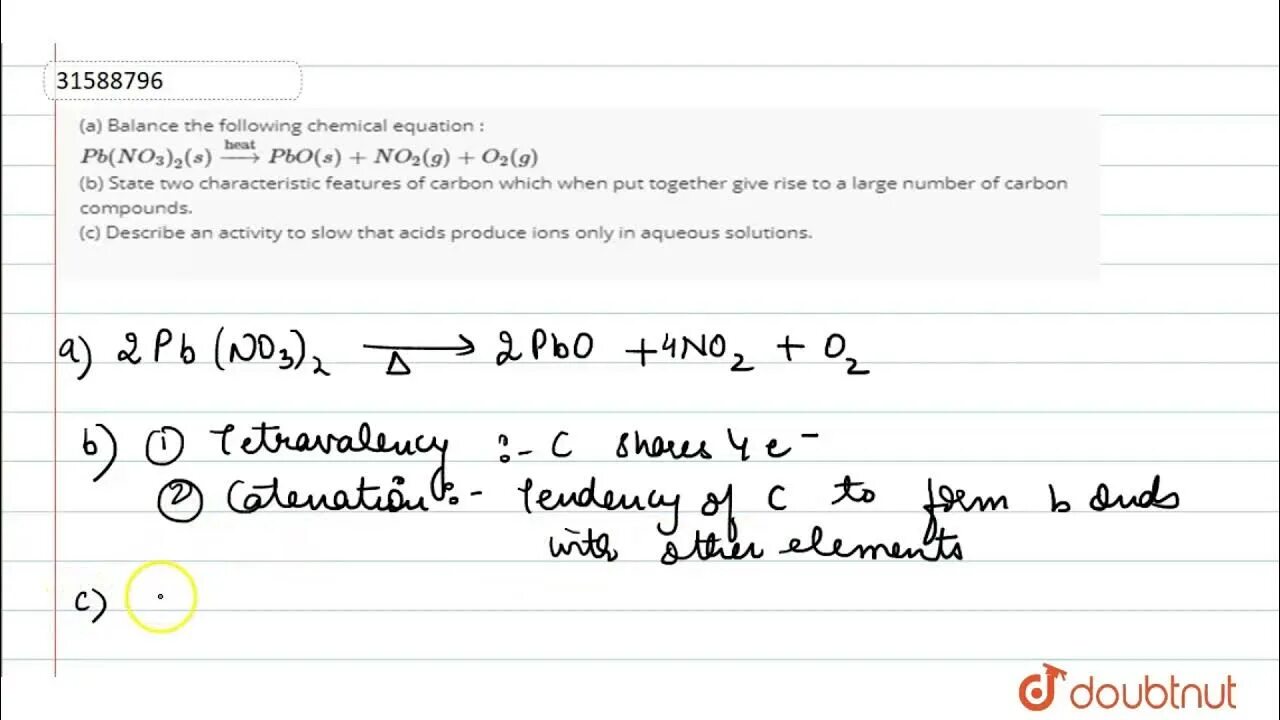 31588796
(a) Balance the following chemical equation :
Pb(NO₃)₂(s) —heat→ PbO(s) + NO₂(g) + O₂(g)
(b) State two characteristic features of carbon which when put together give rise to a large number of carbon
compounds.
(c) Describe an activity to slow that acids produce ions only in aqueous solutions.
a) 2Pb(NO₃)₂ —Δ→ 2PbO + 4NO₂ + O₂
b) ① Tetravalency :- C shares 4 e⁻
② Catenation :- Tendency of C to form bonds
with other elements
c)
doubtnut